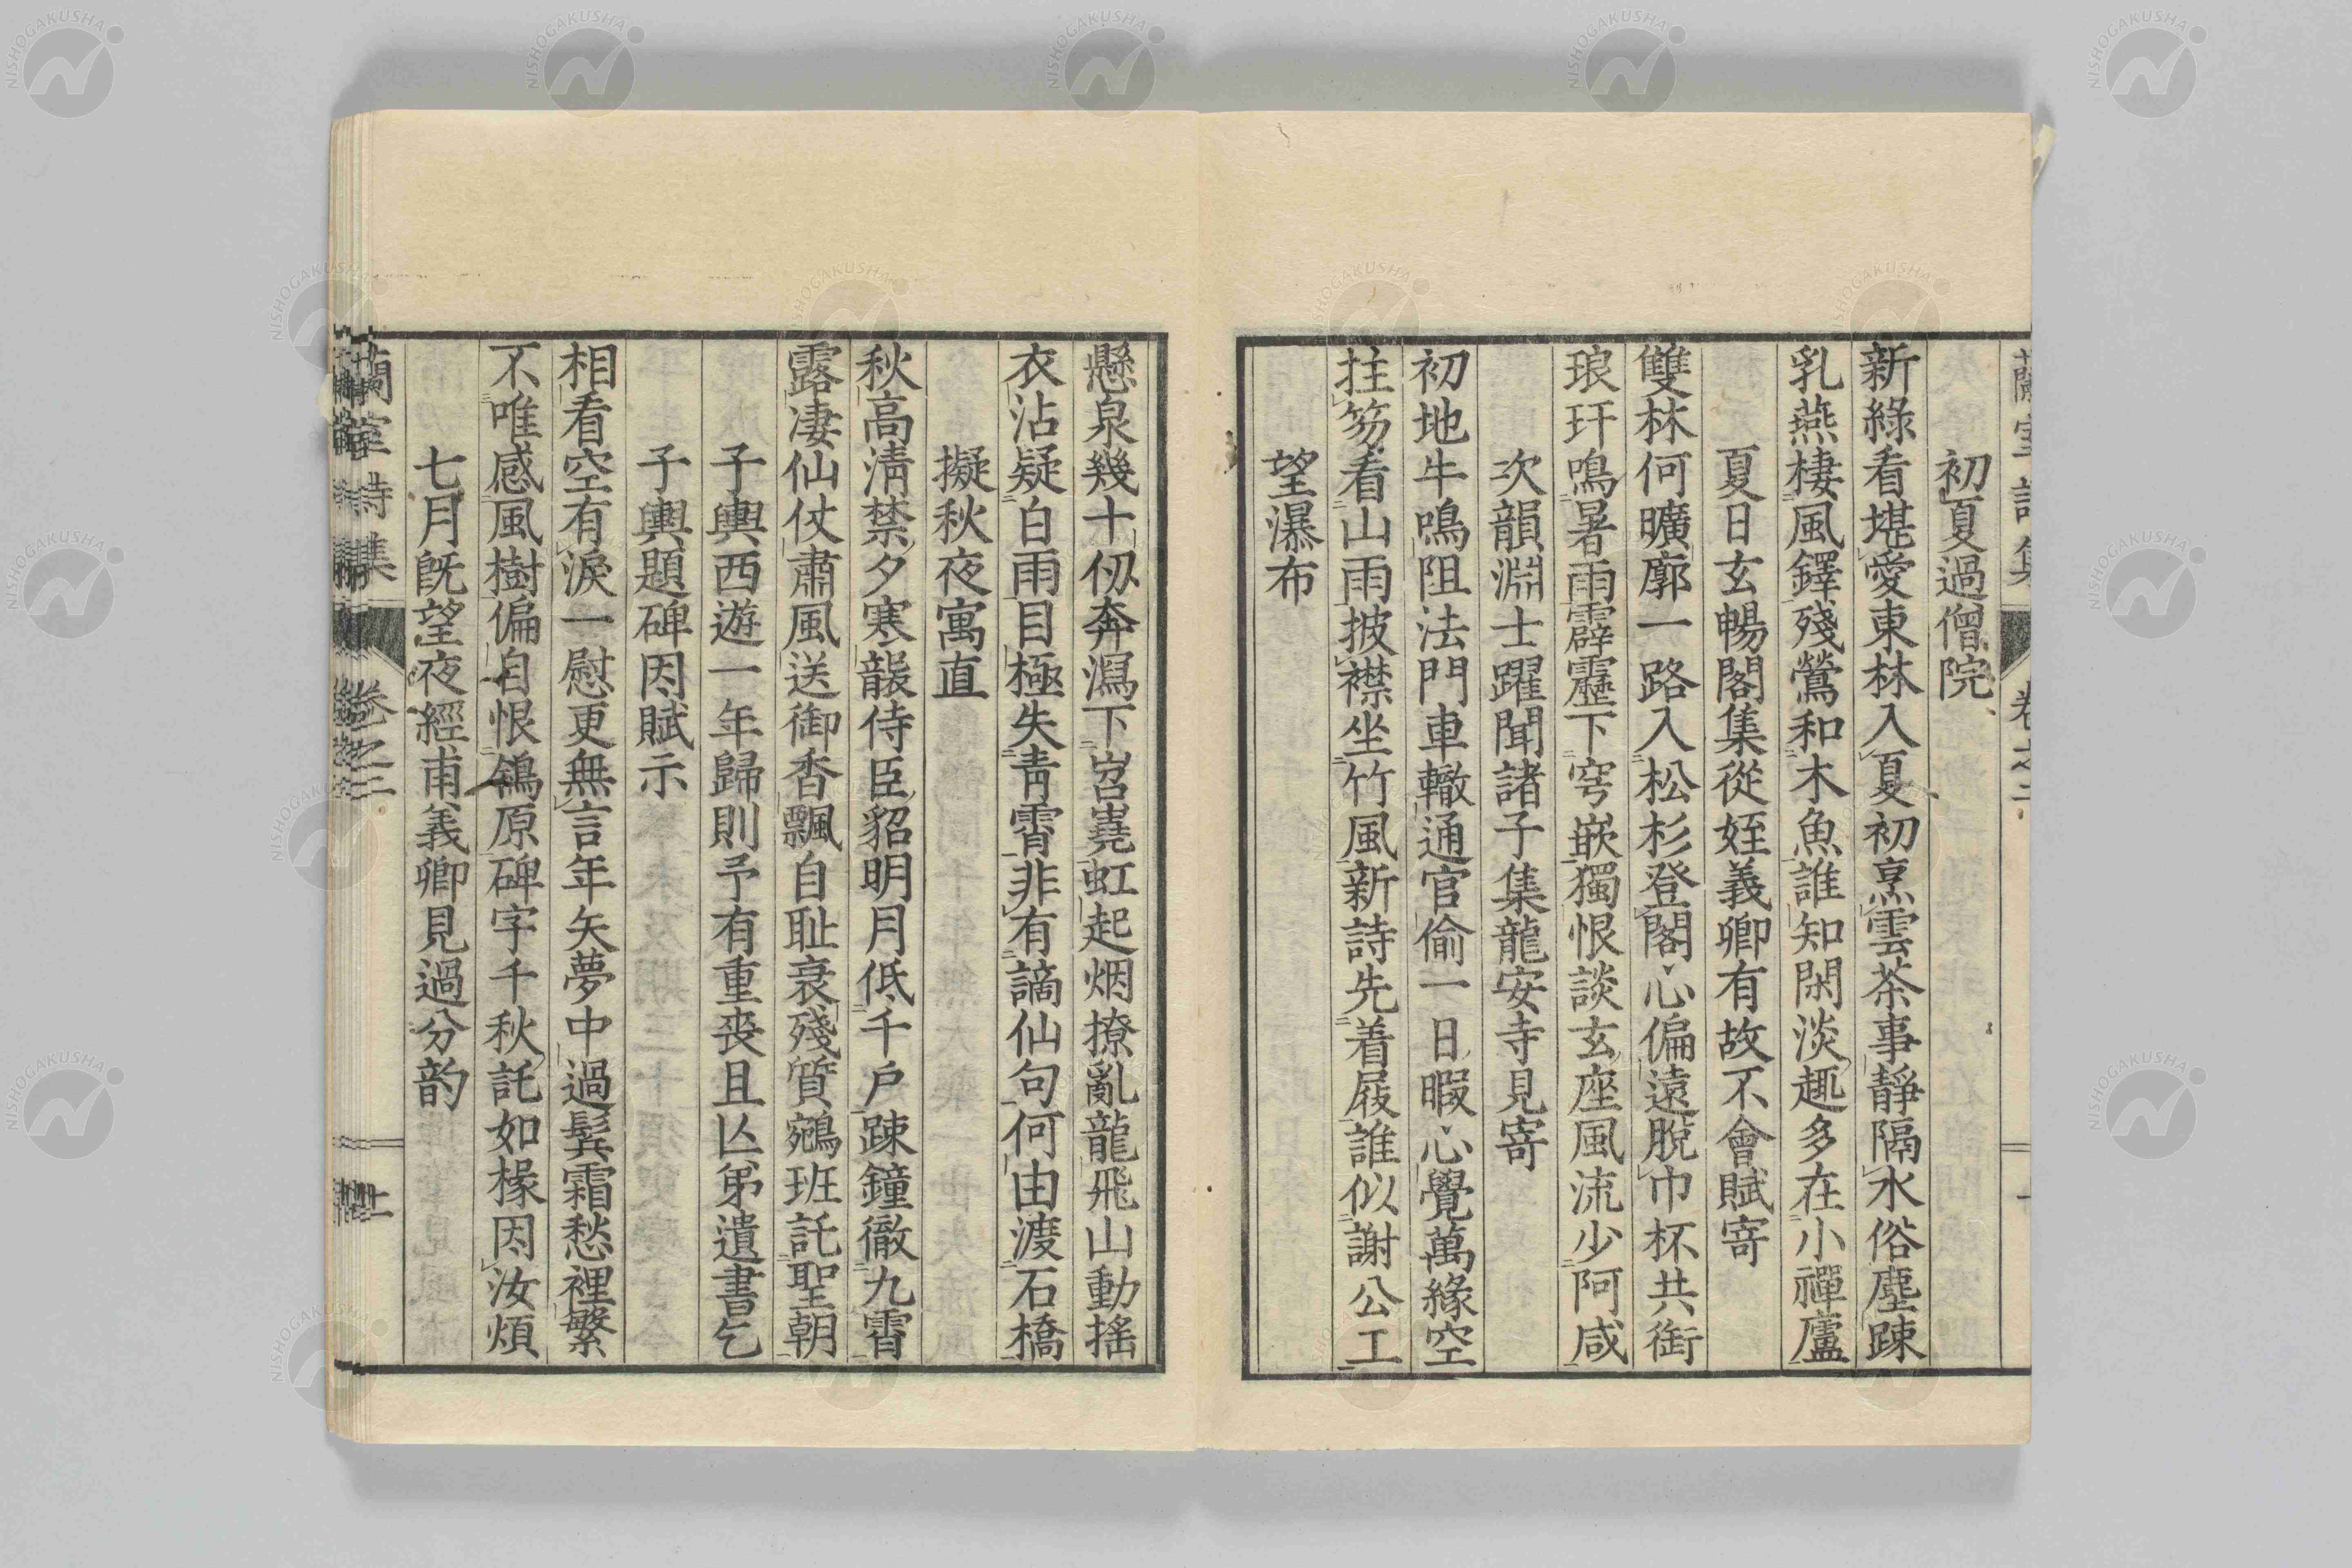 初夏過僧院
新綠看堪愛東林入夏初烹雲茶事靜隔水俗塵踈
乳燕棲風鐸殘鶯和木魚誰知閑淡趣多在小禪廬
夏日玄暢閣集從姪義卿有故不會賦寄
雙林何曠廓一路入松杉登閣心偏遠脫巾杯共銜
琅玕鳴暑雨霹靂下穹嵌獨恨談玄座風流少阿咸
次韻淵士躍聞諸子集龍安寺見寄
初地牛鳴阻法門車轍通官偷一日暇心覺萬緣空
拄笏看山雨披襟坐竹風新詩先着屐誰似謝公工
望瀑布
懸泉幾十仭奔瀉下岧嶤虹起烟撩亂龍飛山動搖
衣沾疑白雨目極失青霄非有謫仙句何由渡石橋
擬秋夜寓直
秋高淸禁夕寒襲侍臣貂明月低千戶踈鐘徹九霄
露凄仙仗肅風送御香飄自耻衰殘質鵷班託聖朝
子輿西遊一年歸則予有重喪且亾弟遺書乞
子輿題碑因賦示
相看空有淚一慰更無言年矢夢中過鬂霜愁裡繁
不唯感風樹偏自恨鴒原碑字千秋託如椽因汝煩
七月既望夜經甫義卿見過分韵
蘭室詩集 卷之二
NISHOGAKUSHA